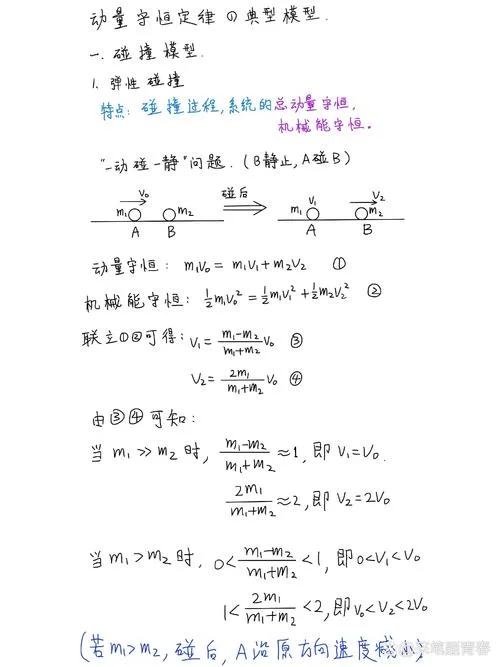 动量守恒定律的典型模型.
一. 碰撞模型.
1. 弹性碰撞
特点: 碰撞过程,系统的总动量守恒,
机械能守恒。
"一动碰一静"问题.(B静止,A碰B)
V₀ 碰后 V₁ V₂
m₁ m₂ m₁ m₂
A B A B
动量守恒: m₁V₀ = m₁V₁+m₂V₂ ①
机械能守恒: ½m₁V₀² = ½m₁V₁² + ½m₂V₂² ②
联立①②可得: V₁ = (m₁-m₂)/(m₁+m₂) V₀ ③
V₂ = 2m₁/(m₁+m₂) V₀ ④
由③④可知:
当 m₁ >> m₂ 时, (m₁-m₂)/(m₁+m₂) ≈ 1, 即 V₁=V₀.
2m₁/(m₁+m₂) ≈ 2, 即 V₂=2V₀
当 m₁ > m₂ 时, 0 < (m₁-m₂)/(m₁+m₂) < 1, 即 0<V₁<V₀
1 < 2m₁/(m₁+m₂) < 2, 即 V₀<V₂<2V₀
(若m₁>m₂, 碰后, A沿原方向速度减小)